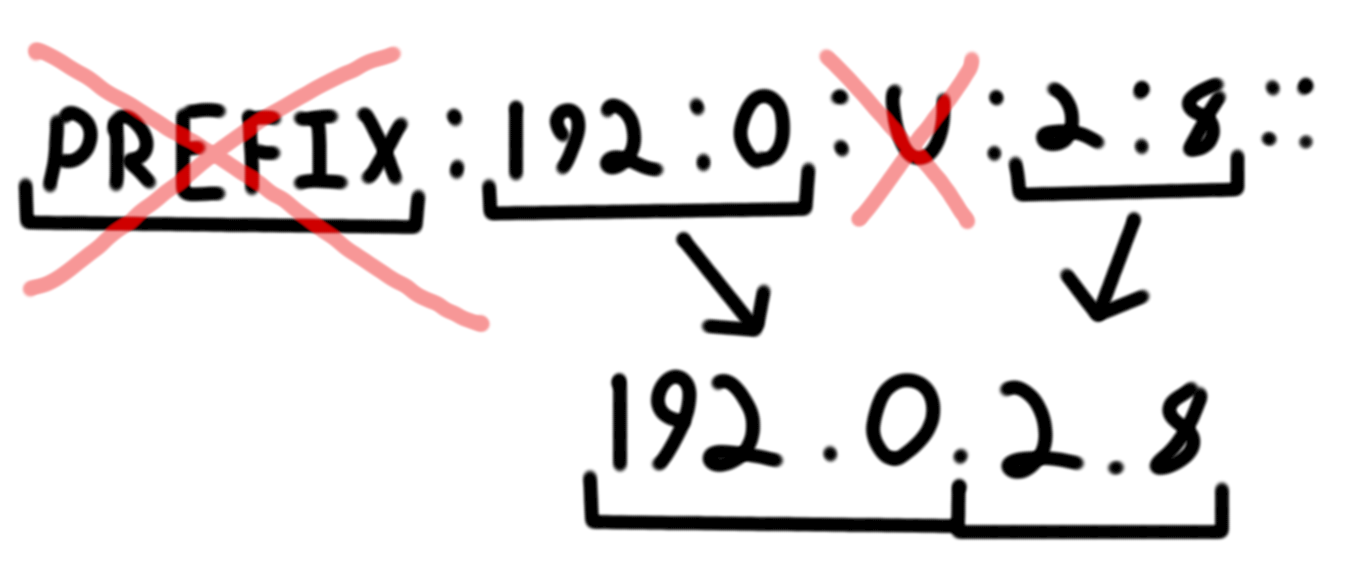 PREFIX:192:0:U:2:8::
192.0.2.8